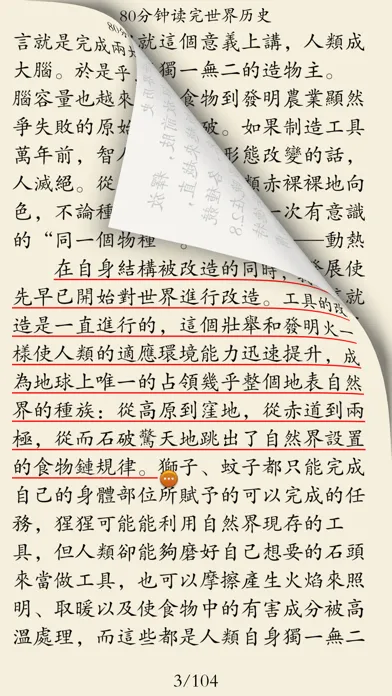 80分钟读完世界历史
言就是完成兩大 就這個意義上講，人類成
大腦。於是乎 獨一無二的造物主。
腦容量也越來 食物到發明農業顯然
爭失敗的原始 破。如果制造工具
萬年前，智人 形態改變的話，
人滅絕。從 類赤裸裸地向
色，不論種 一次有意識
的“同一個物種 ——動熱
在自身結構被改造的同時， 發展使
先早已開始對世界進行改造。工具的改 就
造是一直進行的，這個壯舉和發明火一
樣使人類的適應環境能力迅速提升，成
為地球上唯一的占領幾乎整個地表自然
界的種族：從高原到窪地，從赤道到兩
極，從而石破驚天地跳出了自然界設置
的食物鏈規律。獅子、蚊子都只能完成
自己的身體部位所賦予的可以完成的任
務，猩猩可能能利用自然界現存的工
具，但人類卻能夠磨好自己想要的石頭
來當做工具，也可以摩擦產生火焰來照
明、取暖以及使食物中的有害成分被高
溫處理，而這些都是人類自身獨一無二
3/104